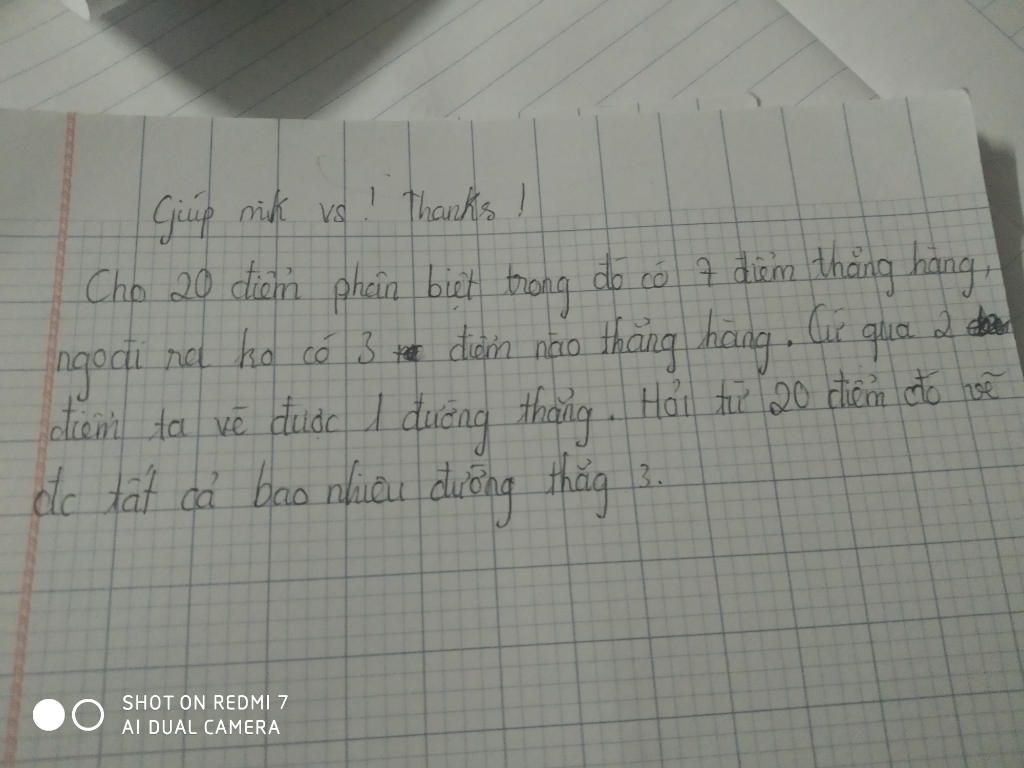 Giúp mik vs ! Thanks !
Cho 20 điểm phân biệt trong đó có 7 điểm thẳng hàng,
ngoài ra ko có 3 điểm nào thẳng hàng. Cứ qua 2
điểm ta vẽ được 1 đường thẳng. Hỏi từ 20 điểm đó vẽ
đc tất cả bao nhiêu đường thẳg ?.
SHOT ON REDMI 7
AI DUAL CAMERA